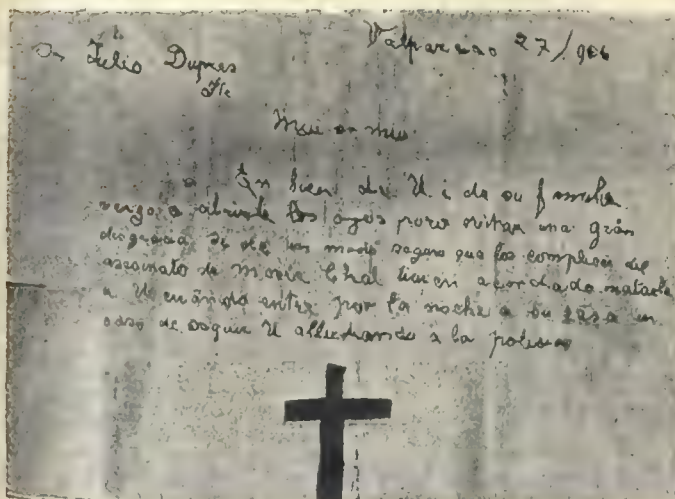 Valparaiso 27/906
Dn Julio Dupres
Pte
Mui sr mio
En bien de U i de su familia
vengo a abrirle los ojos para evitar una grān
disgracia. Se de un modo seguro que los complices del
asesinato de Maria Chal tienen acordado matarle
a U cuāndo entre por la noche a su casa en
caso de seguir U alludando a la polisia